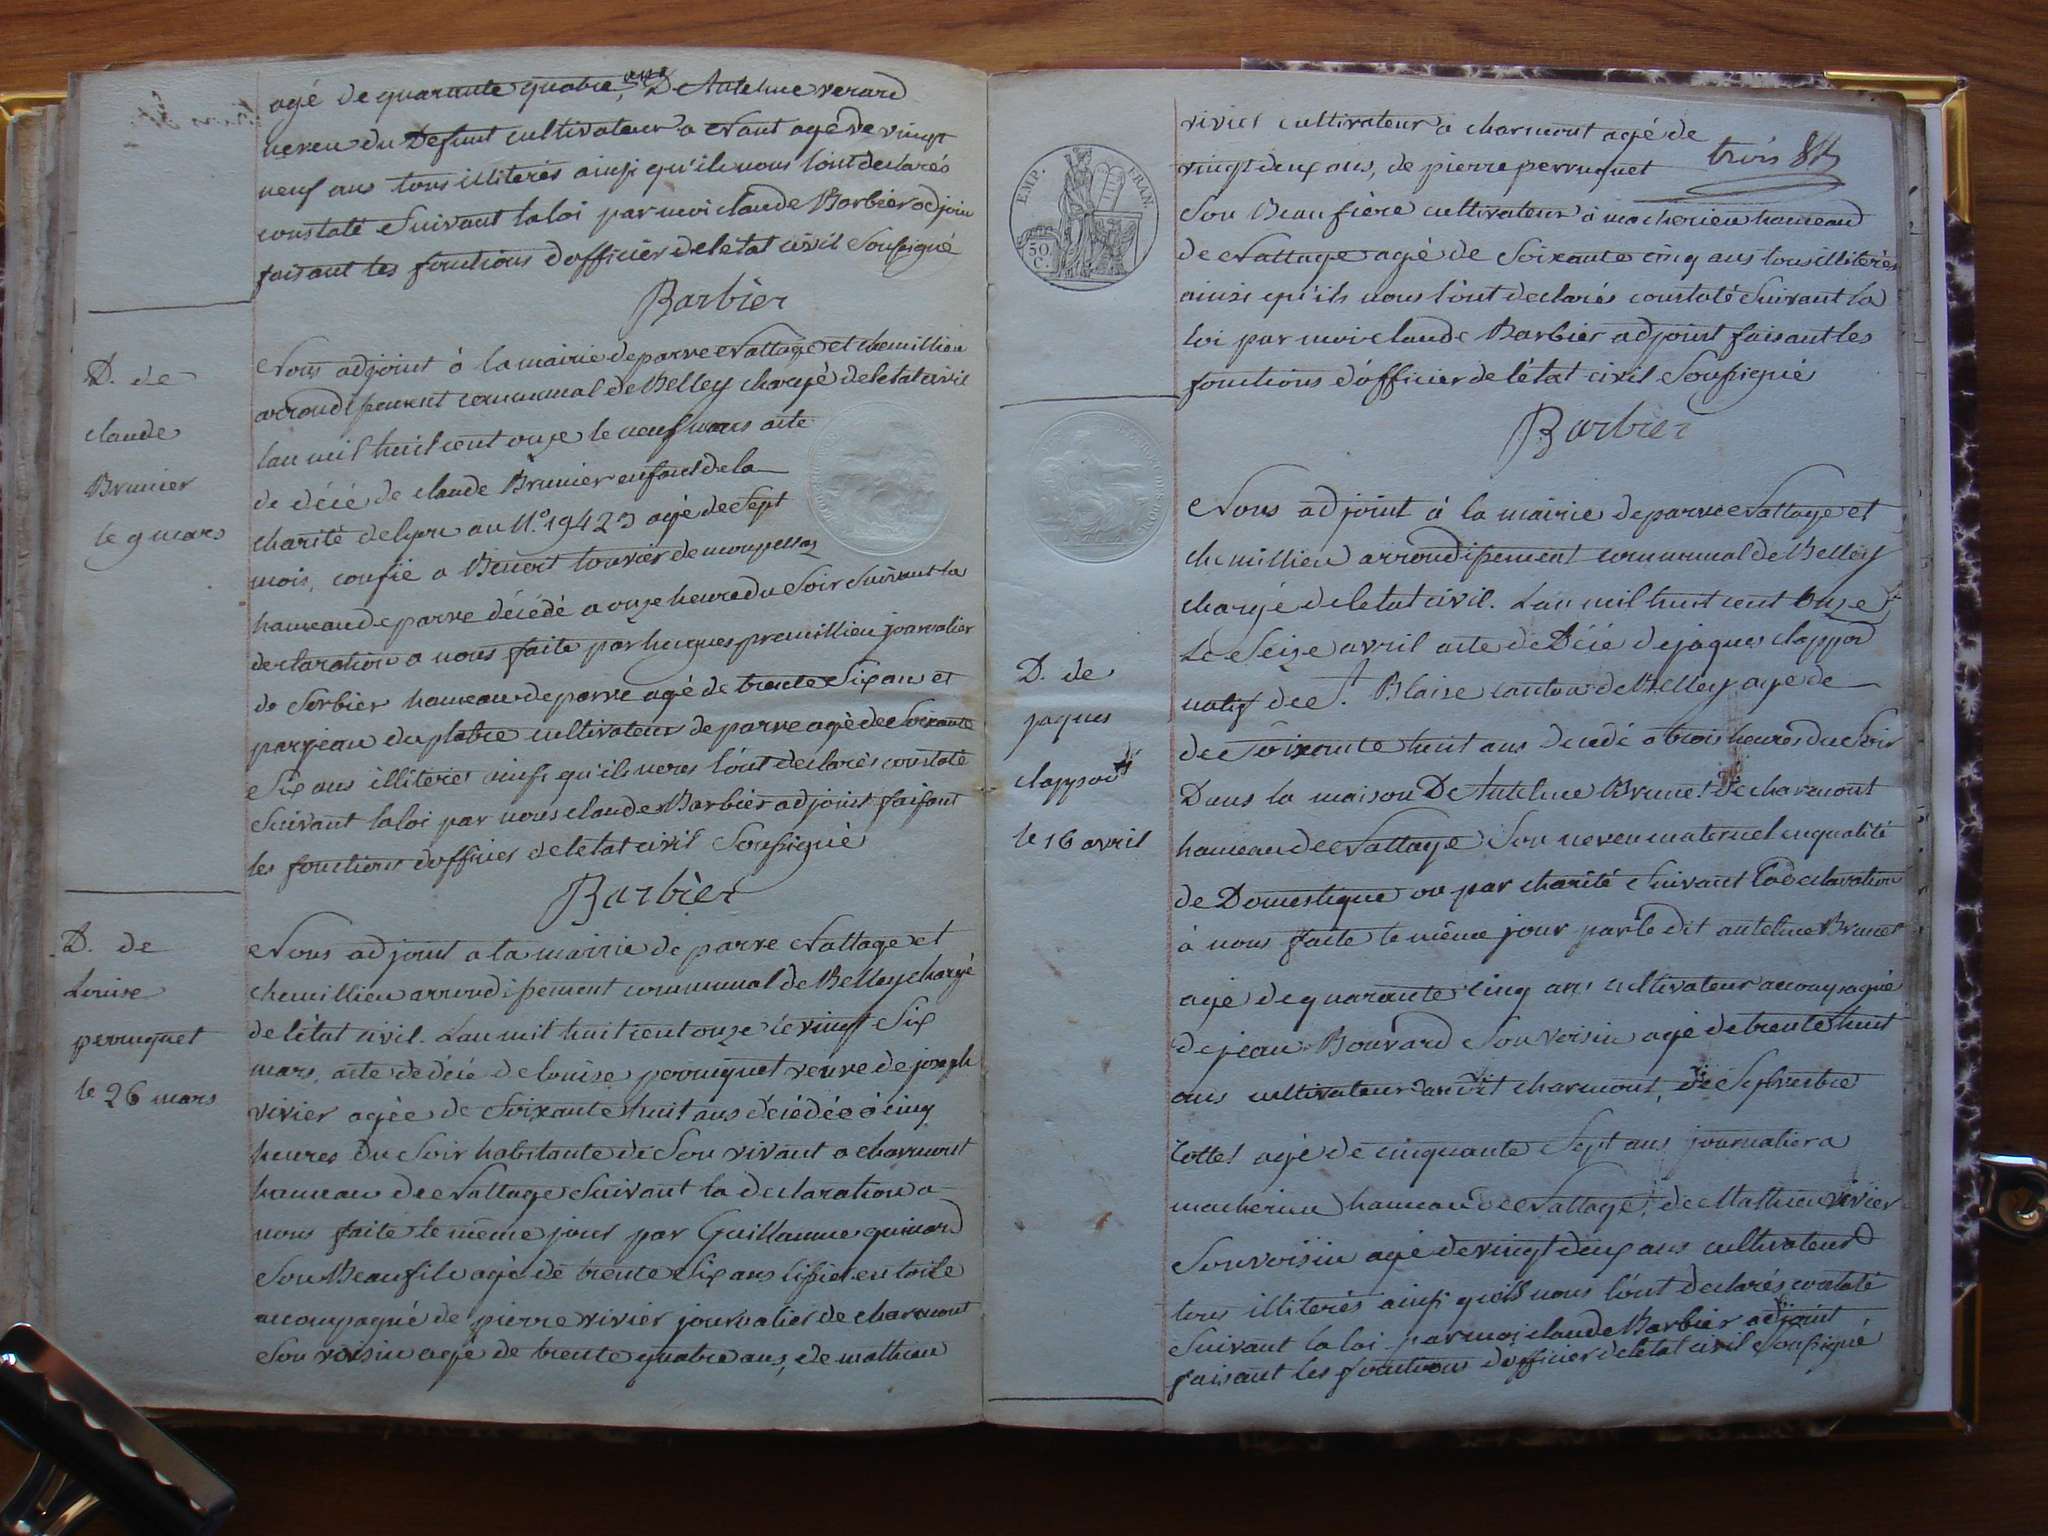 agé de quarante quatre ans D Antelme verard
neveu du Defunt cultivateur a Nant agé de vingt
neuf ans tous illiterés ainsi qu'ils nous l'ont declarés
constaté Suivant la loi par moi claude Barbier adjoin
faisant les fonctions d'officier de l'etat civil Soussigné
Barbier
D. de
claude
Brunier
le 9 mars
Nous adjoint à la mairie de parve Nattage et chemillieu
arrondissement communal de Belley chargé de l'etat civil
l'an mil huit cent onze le neuf mars acte
de décé de claude Brunier enfant de la
charité de lyon au N.º 19423 agé de Sept
mois, confié a Benoit touvier de
hameau de parve décédé a onze heure du Soir Suivant la
declaration a nous faite par hugues premillieu journalier
de Sorbier hameau de parve agé de trente Six an et
par jean duplatre cultivateur de parve agé de Soixante
Six ans illiteries ainsi qu'ils nous l'ont declarés constaté
Suivant la loi par nous claude Barbier adjoint faisant
les fonctions d'officier de l'etat civil Soussigné
Barbier
D. de
Louise
perruquet
le 26 mars
Nous adjoint a la mairie de parve Nattage et
chemillieu arrondissement communal de Belley chargé
de l'état civil. L'an mil huit cent onze le vingt Six
mars, acte de décé de louise perruquet veuve de joseph
vivier agée de Soixante huit ans décédée à cinq
heures du Soir habitante de Son vivant a charmont
hameau de Nattage Suivant la declaration a
nous faite le même jour par Guillaume guinard
Son Beaufils agé de trente Six ans tissier en toile
accompagné de pierre vivier journalier de charmont
Son voisin agé de trente quatre ans, de mathieu
EMP. FRAN.
50 C.
trois
vivier cultivateur a charmont agé de
vingt deux ans, de pierre perruquet
Son Beaufrere cultivateur à macherieu hameau
de Nattage agé de Soixante cinq ans tous illiterés
ainsi qu'ils nous l'ont declarés constaté Suivant la
loi par moi claude Barbier adjoint faisant les
fonctions d'officier de l'état civil Soussigné
Barbier
D. de
jaques
clappod
le 16 avril
Nous adjoint à la mairie de parve Nattage et
chemillieu arrondissement communal de Belley
chargé de l'etat civil. L'an mil huit cent Onze et
Le Seize avril acte de Décé de jaques clappod
natif de S.t Blaise canton de Belley agé de
de Soixante huit ans decédé a trois heures du Soir
Dans la maison D Antelme Brunet De charmont
hameau de Nattage Son neveu maternel en qualité
de Domestique ou par charité Suivant la declaration
à nous faite le même jour par le Dit antelme Brunet
agé de quarante cinq ans cultivateur accompagné
de jean Bouvard Son voisin agé de trente huit
ans cultivateur au Dit charmont, de Sylvestre
Cottet agé de cinquante Sept ans journalier a
macherieu hameau de Nattage, de Mathieu vivier
Son voisin agé de vingt deux ans cultivateur
tous illiterés ainsi qu'ils nous l'ont declarés constaté
Suivant la loi par moi claude Barbier adjoint
faisant les fonctions d'officier de l'etat civil Soussigné